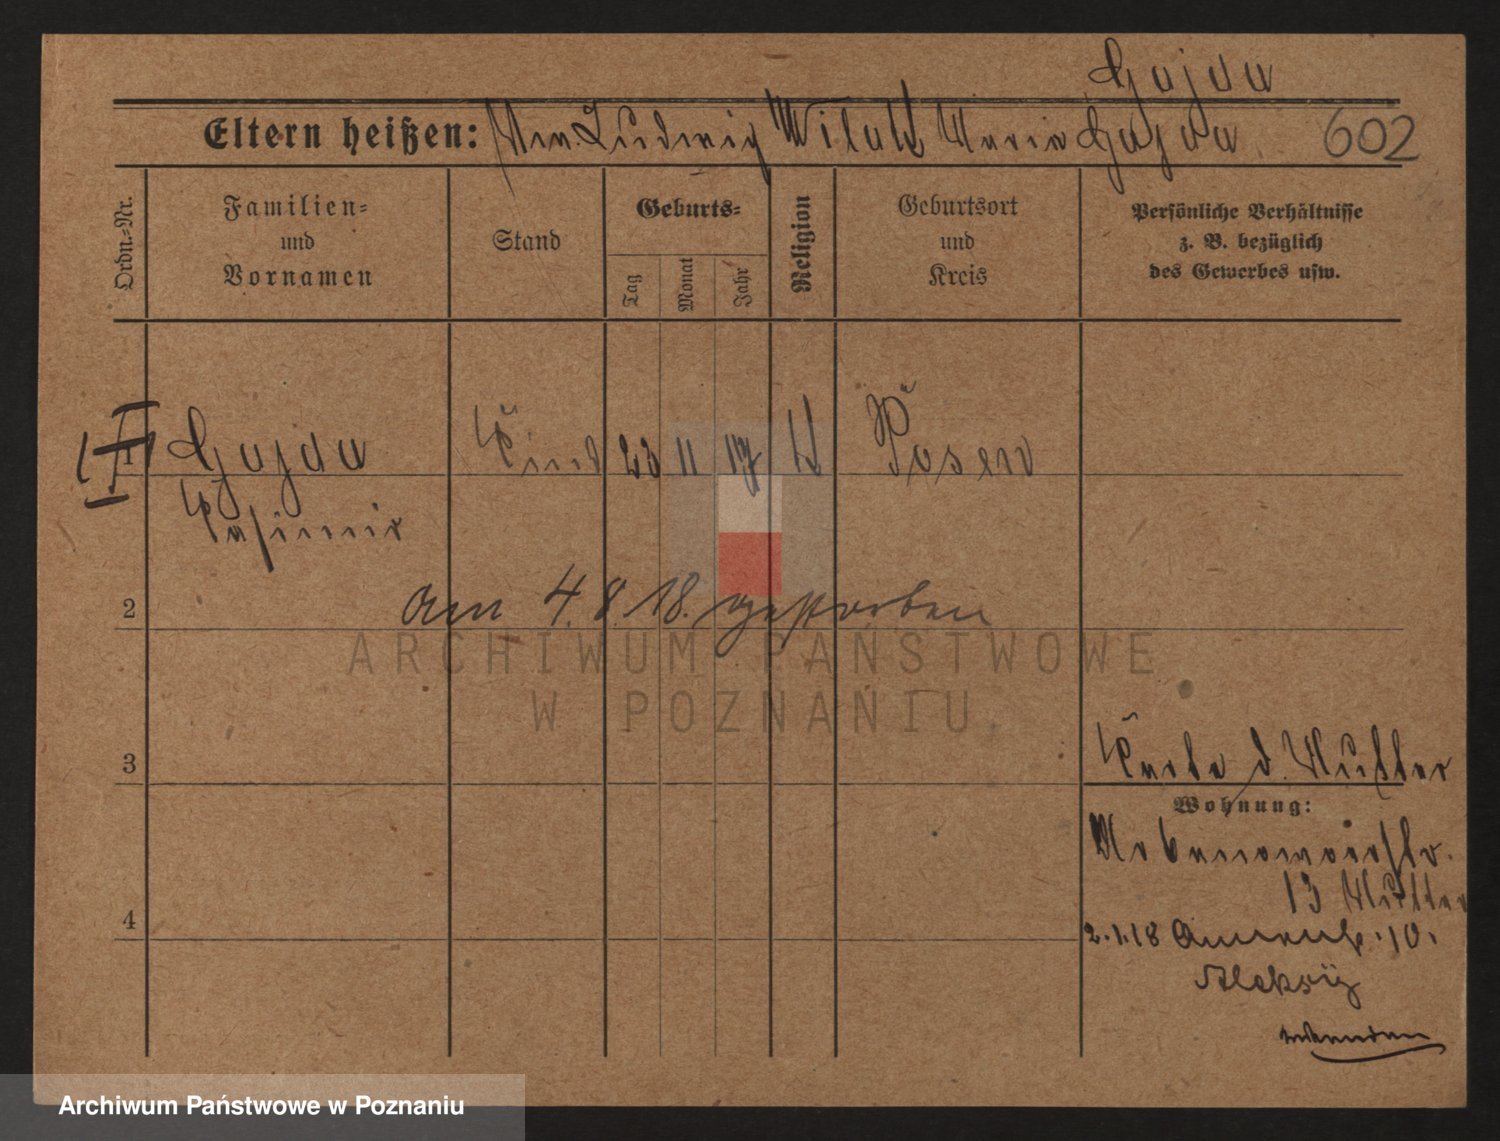 Gajda
Eltern heißen: Ludwig Witak Maria Gajda 602
Ordn.=Nr.
Familien=
und
Vornamen
Stand
Geburts=
Tag
Monat
Jahr
Religion
Geburtsort
und
Kreis
Persönliche Verhältnisse
z. B. bezüglich
des Gewerbes usw.
1 Gajda Kind 23 11 17 k Posen
Kasimir
2
am 4.8.18. gestorben
ARCHIWUM PAŃSTWOWE
W POZNANIU
3
Karte d. Mutter
Wohnung:
13 Mutter
4
2.1.18 10.
Archiwum Państwowe w Poznaniu